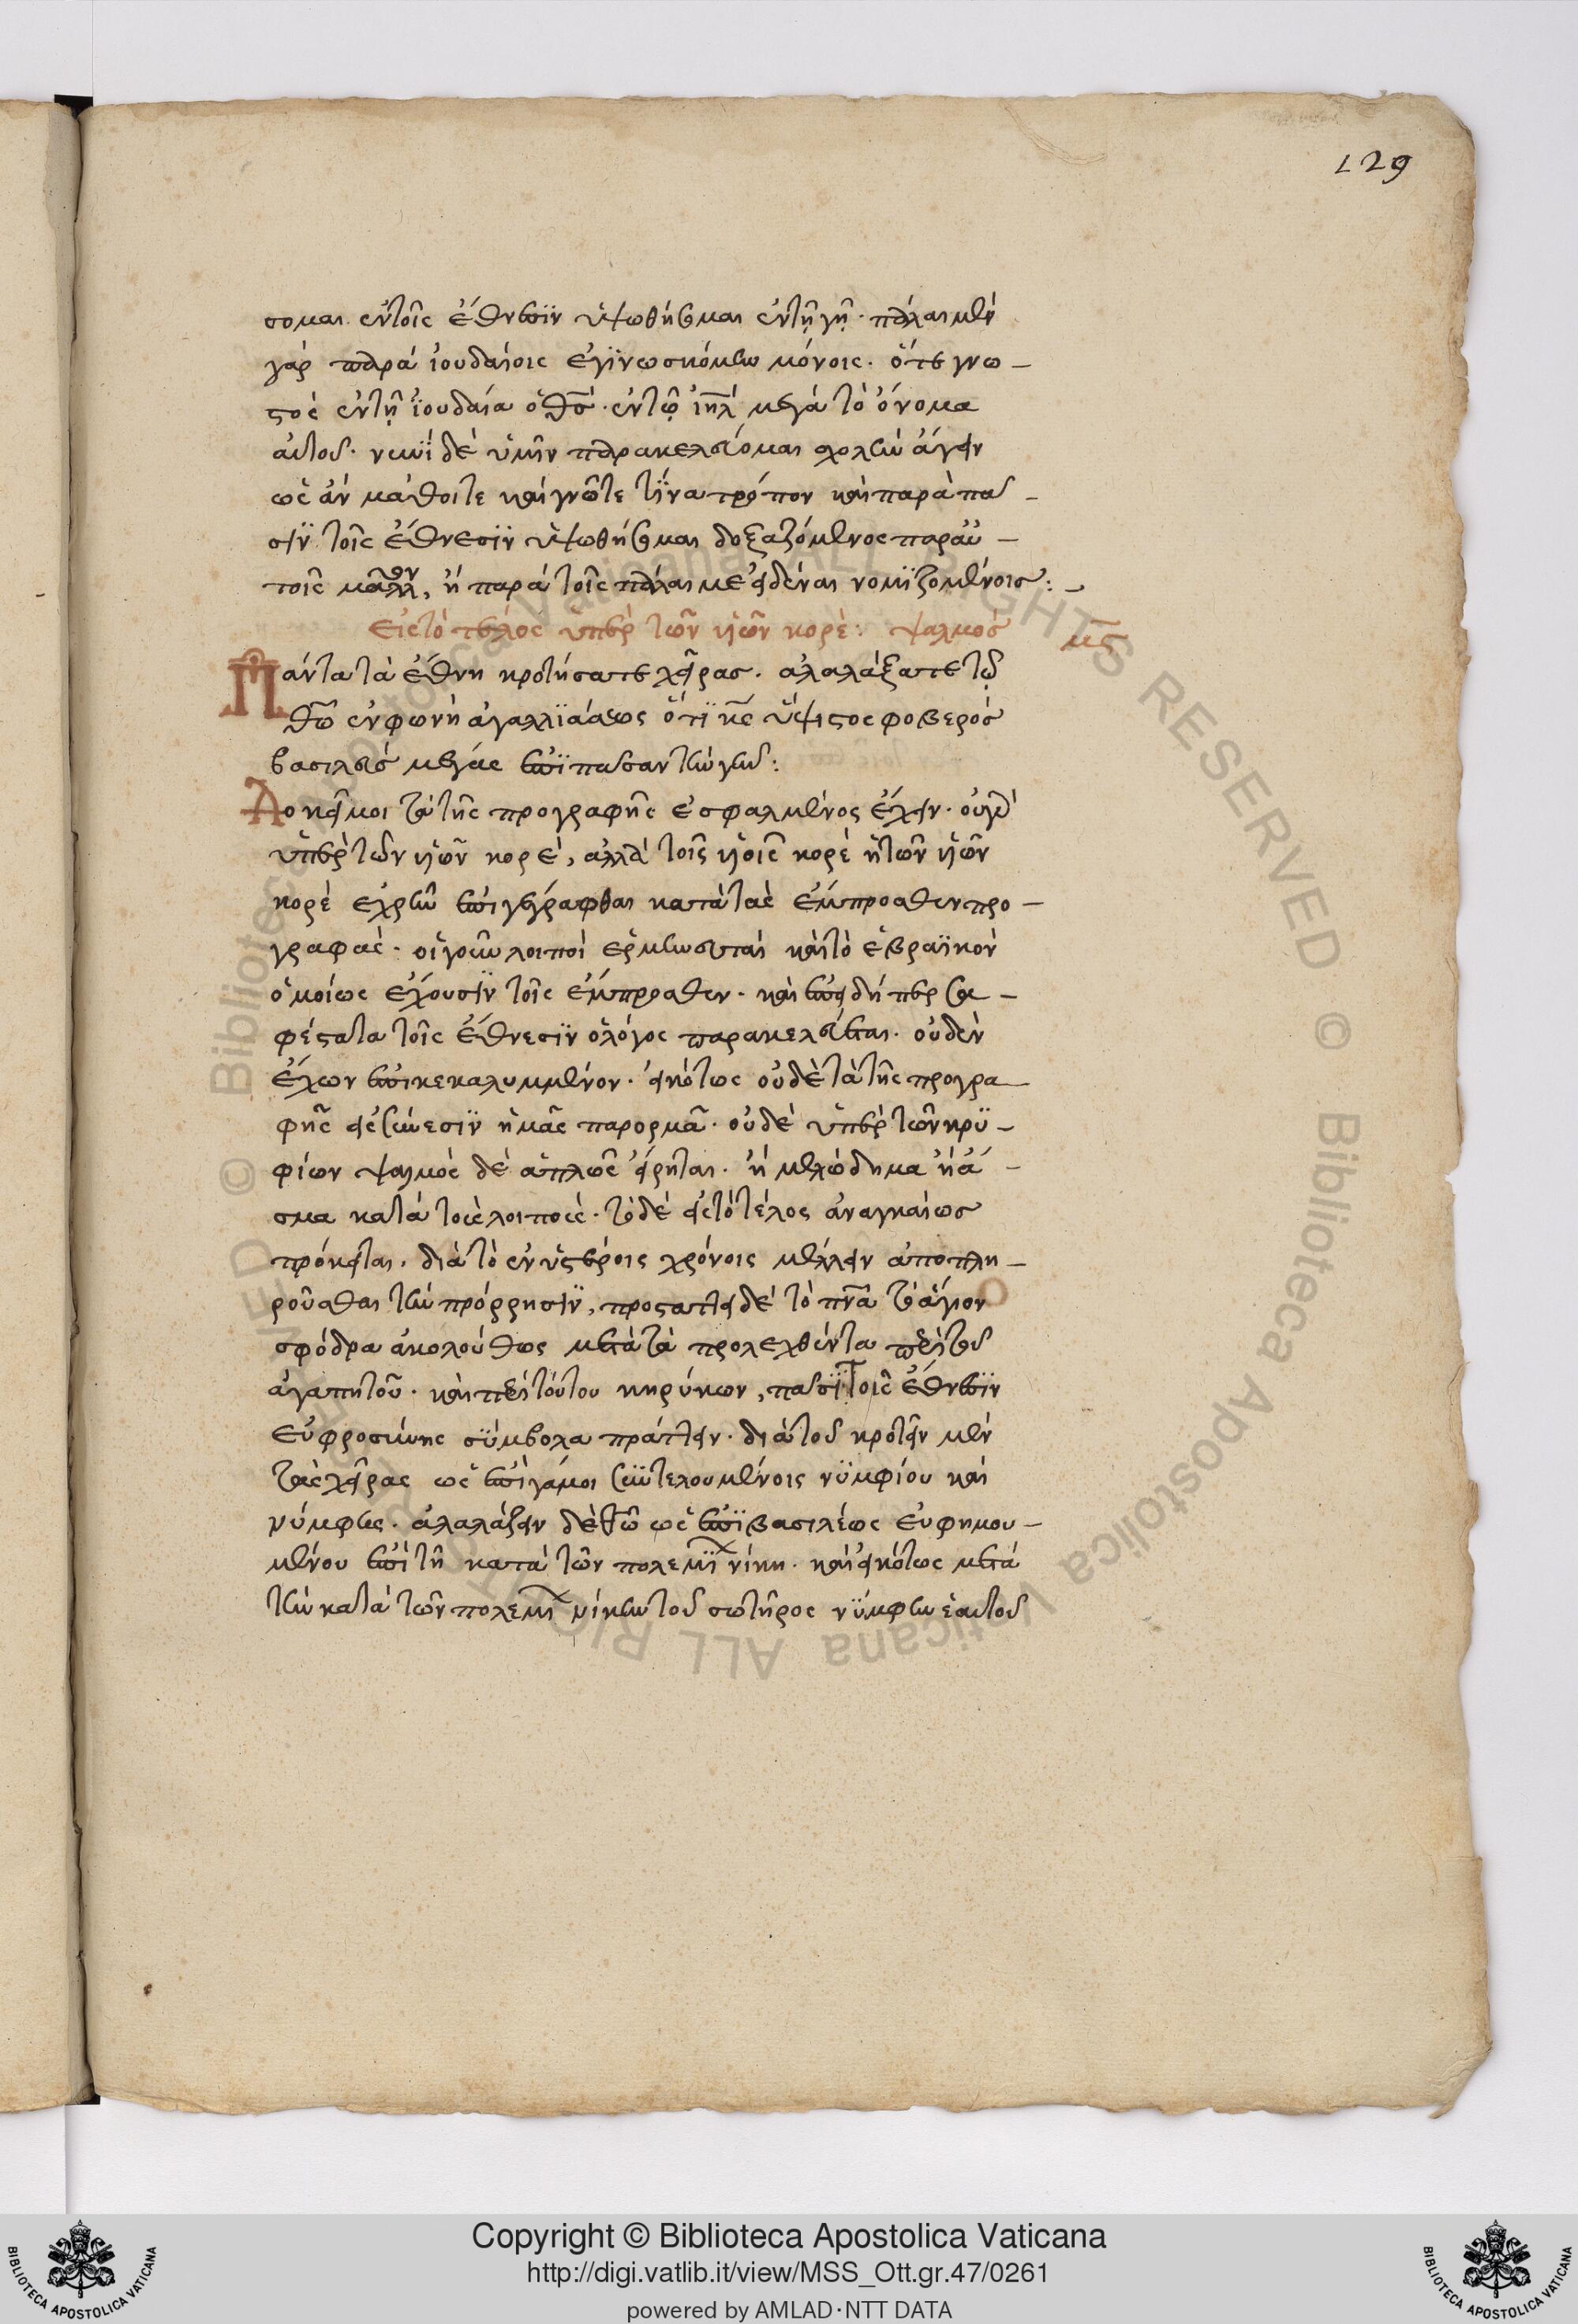 129
σομαι ἐν τοῖς ἔθνεσϊν ὑψωθήσομαι ἐν τῇ γῇ· πάλαι μὲν
γὰρ παρὰ ἰουδαίοις ἐγϊνωσκόμην μόνοις· ὅτε γνω –
στὸς ἐν τῇ ἰουδαία ὁ θσ̅· ἐν τῷ ιη̅λ μέγα τὸ ὄνομα
αὐτοῦ· νυνῒ δὲ ὑμῖν παρακελεύομαι σχολὴν ἄγειν
ὡς ἂν μάθοιτε καὶ γνῶτε τΐνα τρόπον καὶ παρὰ πᾶ –
σϊν τοῖς ἔθνεσϊν ὑψωθήσομαι δοξαζόμενος παρ' αὐ –
τοῖς μᾶλλον, ἢ παρὰ τοῖς πάλαι με εἰδέναι νομϊζομένοις: –
εἰς τὸ τέλος ὑπὲρ τῶν υἱῶν κορέ: ψαλμὸς μς̅
Πάντα τὰ ἔθνη κροτήσατε χεῖρας· ἀλαλάξατε τῷ
θω̅ ἐν φωνῇ ἀγαλλϊάσεως ὅτϊ κς̅ ὕψιστος φοβερὸς
βασιλεὺς μέγας ἐπῒ πᾶσαν τὴν γῆν:
Δοκεῖ μοι τὰ τῆς προγραφῆς ἐσφαλμένως ἔχειν· οὐ γὰρ
ὑπὲρ τῶν υἱῶν κορέ, ἀλλὰ τοῖς υἱοῖς κορὲ ἢ τῶν υἱῶν
κορὲ ἐχρῆν ἐπιγεγράφθαι κατὰ τὰς ἔμπροσθεν προ –
γραφάς· οἱ γοῦν λοιποὶ ἑρμηνευταὶ καὶ τὸ ἑβραϊκὸν
ὁμοίως ἔχουσϊν τοῖς ἔμπροσθεν· καὶ ἐπειδήπερ σα –
φέστατα τοῖς ἔθνεσϊν ὁ λόγος παρακελεύεται· οὐδὲν
ἔχων ἐπικεκαλυμμένον· εἰκότως οὐδὲ τὰ τῆς προγρα –
φῆς εἰς σύνεσϊν ἡμᾶς παρορμᾶ· οὐδὲ ὑπὲρ τῶν κρυ –
φίων ψαλμὸς δὲ ἁπλῶς εἴρηται· ἢ μελώδημα ἢ ἆ –
σμα κατὰ τοὺς λοιπούς· τὸ δὲ εἰς τὸ τέλος ἀναγκαίως
πρόκειται· διὰ τὸ ἐν ὑστέροις χρόνοις μέλλειν ἀποπλη –
ροῦσθαι τὴν πρόρρησϊν, προστάττει δὲ τὸ πνα̅ τὸ ἅγιον
σφόδρα ἀκολούθως μετὰ τὰ προλεχθέντα περὶ τοῦ
ἀγαπητοῦ· καὶ περὶ τούτου κηρύκων, πᾶσϊ τοῖς ἔθνεσϊν
εὐφροσύνης σύμβολα πράττειν· διὰ τοῦ κροτεῖν μὲν
τὰς χεῖρας ὡς ἐπὶ γάμοι συντελουμένοις νυμφίου καὶ
νύμφης· ἀλαλάζειν δὲ θω̅ ὡς ἐπῒ βασιλέως εὐφημου –
μένου ἐπὶ τῇ κατὰ τῶν πολεμΐ νίκη· καὶ εἰκότως μετὰ
τὴν κατὰ τῶν πολεμΐ νίκην τοῦ σωτῆρος νύμφην ἑαυτοῦ
Copyright © Biblioteca Apostolica Vaticana
http://digi.vatlib.it/view/MSS_Ott.gr.47/0261
powered by AMLAD·NTT DATA